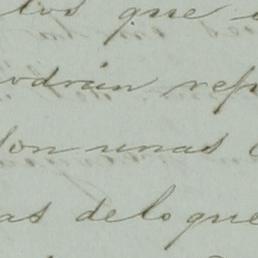 los que
podrán rep
con unas
as delo que